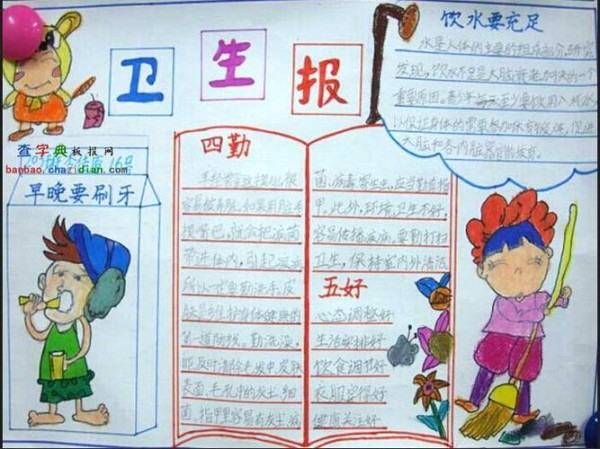 卫生报
饮水要充足
水是人体的主要的组成部分,研究
发现,饮水不足是大脑衰老加快的一个
重要原因。青少年每天至少要饮用八杯水
以保证身体的需要
大脑和各内脏器官的发育。
查字典板报网
banbao.chazidian.com
早晚要刷牙
四勤
容易被弄脏,如果用脏手
摸嘴巴,就会把病菌
带进体内,引起疾病
所以一定要勤洗手,皮
肤是维护身体健康的
第一道防线。勤洗澡,
能及时清除毛发中、皮肤
表面、毛孔中的灰尘、细
菌。指甲里容易有灰尘、病
菌、病毒寄生虫,应当勤剪指
甲。此外,环境卫生不好,
容易传播疾病,要勤打扫
卫生,保持室内外清洁
五好
心态调整好
生活安排好
饮食调节好
衣服穿得好
健康关注好